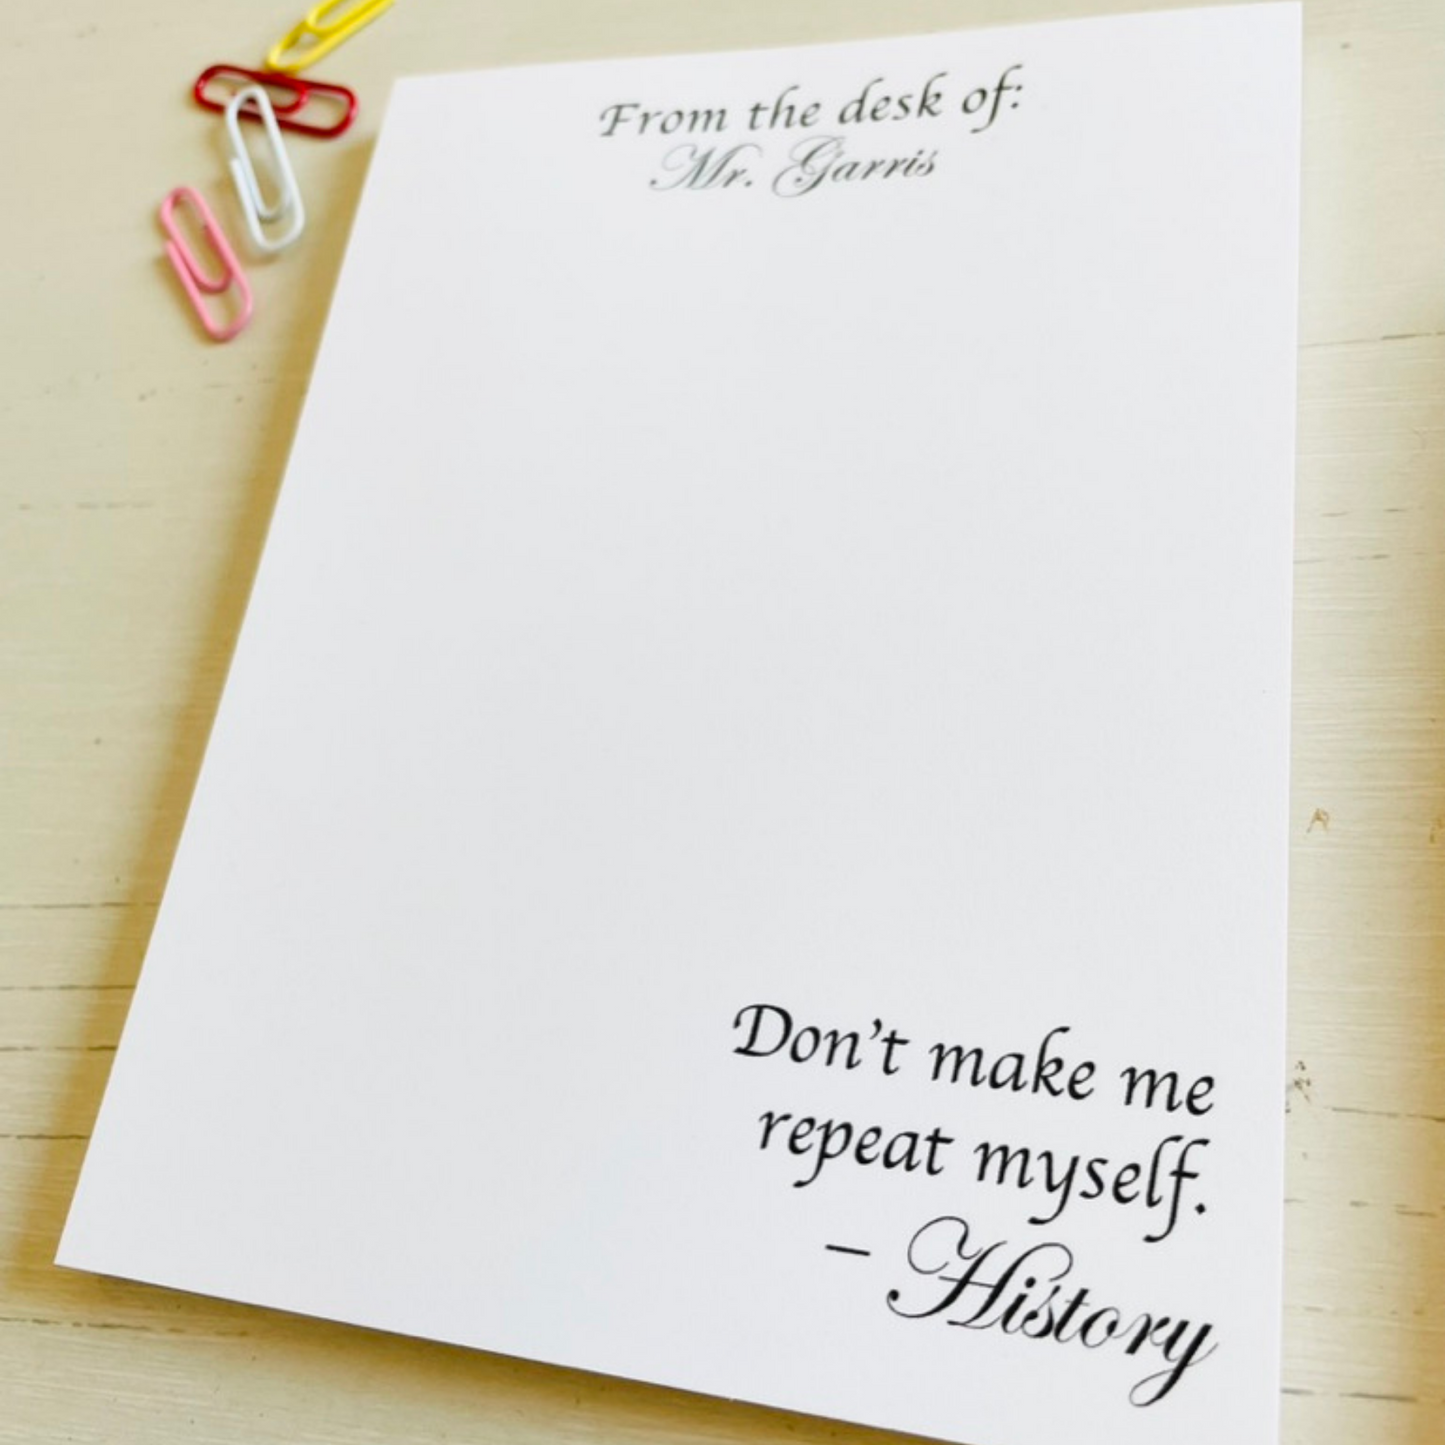 From the desk of:
Mr. Garris
Don't make me
repeat myself.
– History